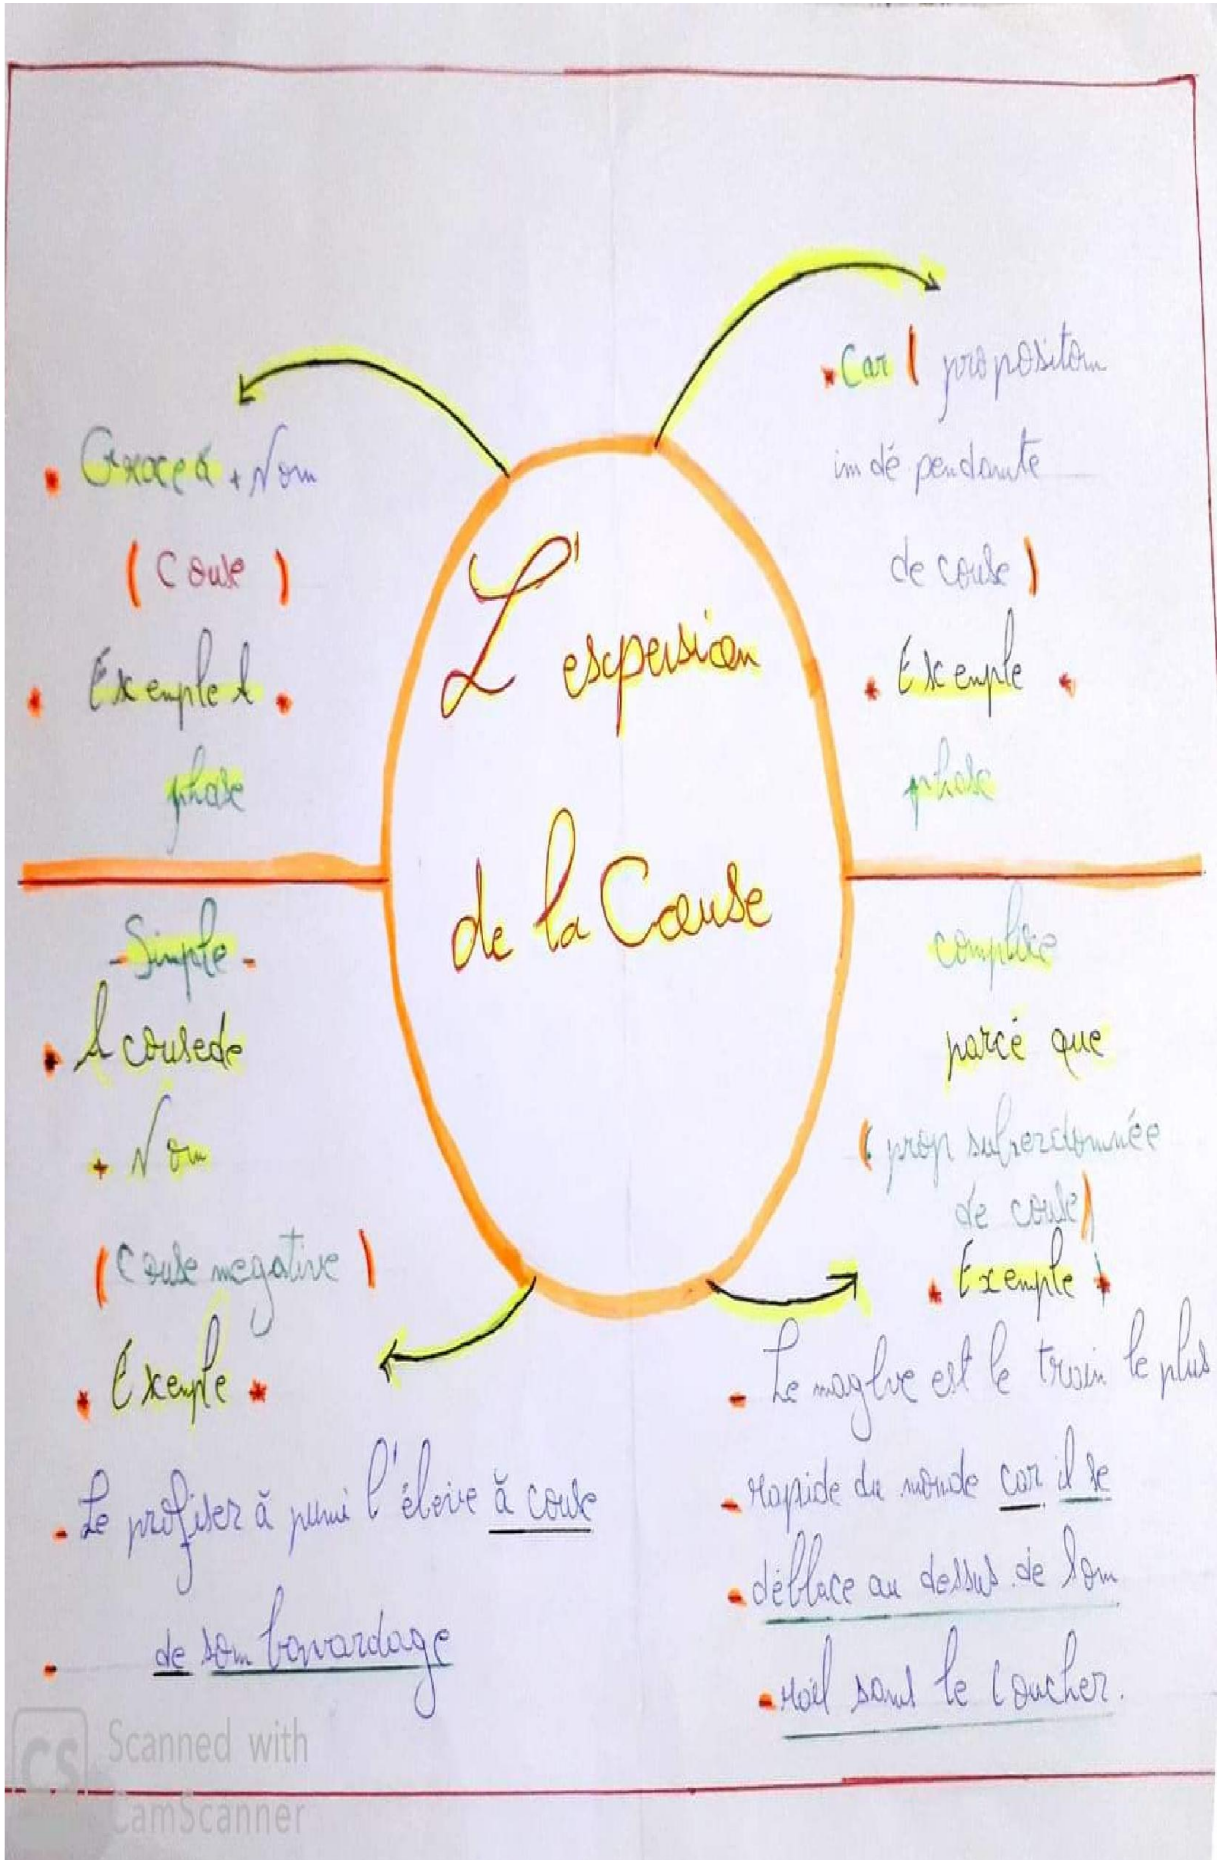 L'
espersion
de la Cause
Grace à + Nom
( Couse )
Exemple 1
phase
Simple
A cousede
+ Nom
( Couse megative )
Exemple
Le profiser à puni l'éleive à couse
de som bavardage
Car ( propositom
indé pendante
de couse )
Exemple
phase
complixe
parcé que
( prop suberdonnée
de couse )
Exemple
Le maglve est le train le plus
rapide du monde car il se
déblace au dessus de som
rail sans le coucher.
CS Scanned with
CamScanner